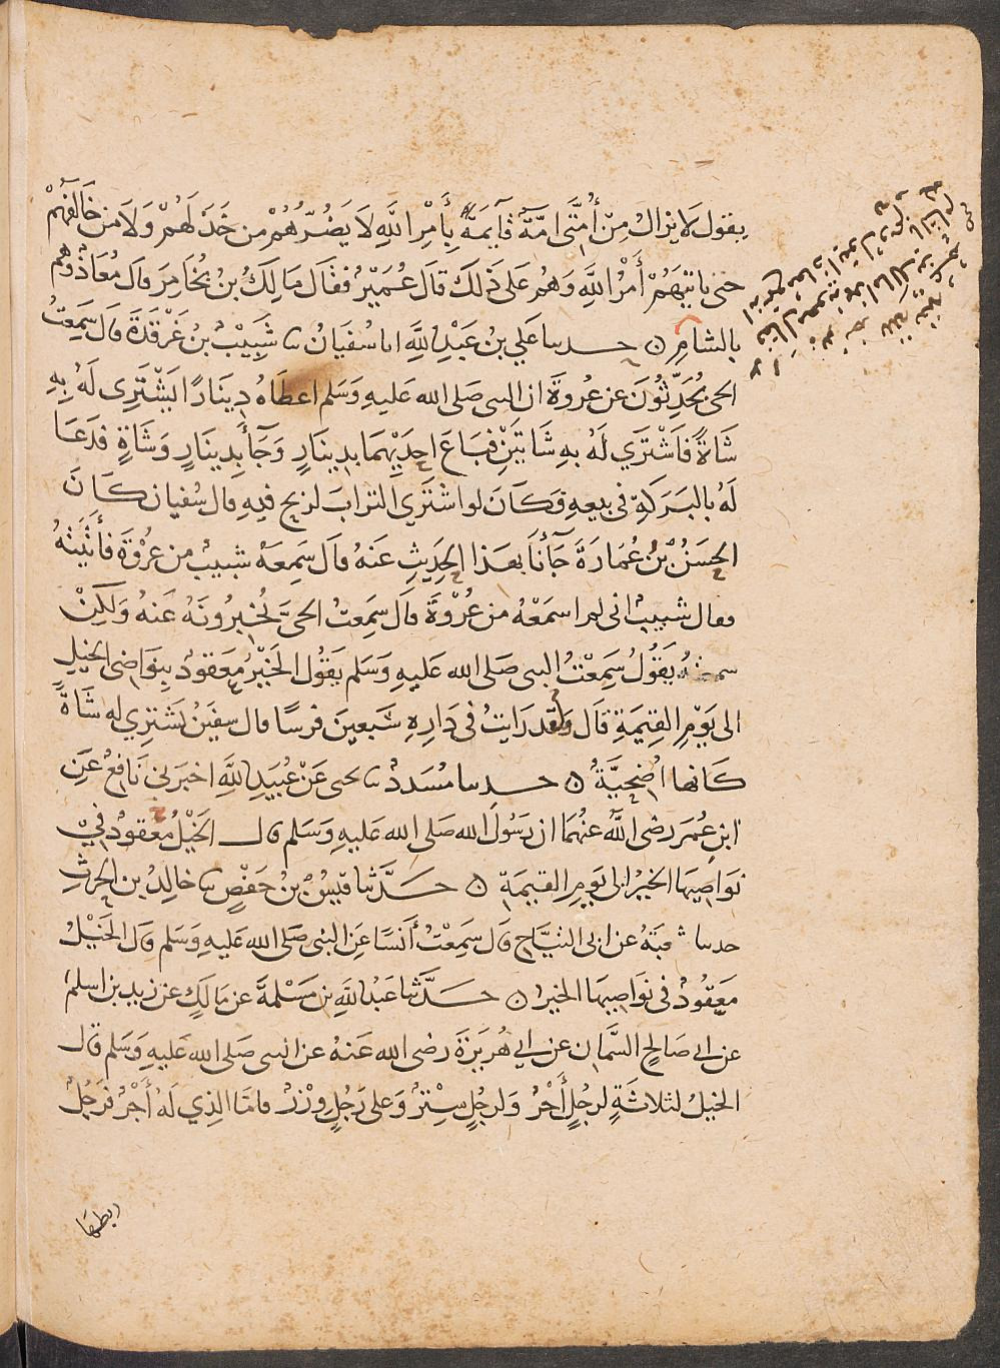 يقول لا يزال من أُمَّتي امّة قآيمة بِأَمْرِ اللَّهِ لَا يَضُرُّهُمْ من خَذَلَهُمْ وَلَا من خَالَفَهُمْ
حتى ياتيَهُمْ أَمْرُ اللَّهِ وَهُم عَلى ذَلكَ قالَ عُمَيْرٌ فقَال مَالِكُ بنُ يُخَامِرَ قالَ مُعَاذٌ وهُم
بالشامِ ۞ حدىىا علي بن عَبْدِ اللَّهِ اىا سُفيَان ىا شَبِيْبُ بنُ غَرْقَدَةَ قال سَمِعتُ
الحي يُحَدِّثُونَ عن عُروةَ ان النبى صَلى الله عَليهِ وَسَلم اعطَاهُ دِينَارًا يَشْتَرِى لَهُ بِهِ
شَاةً فَاشْتَرَي لَهُ بهِ شَاتَيْنِ فبَاعَ احدَيْهمَا بدِينَارٍ وَجَآءَ بدِينَارٍ وَشَاةٍ فدَعَا
لَهُ بالبَرَكةِ فى بيعهِ وَكَانَ لو اشتَرَى الترابَ لربح فيهِ قال سُفيان كَانَ
الحسَنُ بْنُ عُمَارَةَ جَآءَنَا بهَذا الحدِيثِ عَنهُ قالَ سَمِعَهُ شبيبٌ من عُرْوَةَ فأَتَيْتهُ
فقال شبيبٌ انى لم اسمَعْهُ من عُرْوَةَ قالَ سَمِعتُ الحيَّ يُخبِرُونَهُ عَنهُ وَلَكِنْ
سمعتُهُ يقَولُ سَمِعْتُ النبى صَلى الله عَليهِ وَسَلم يَقُول الخَيْرُ مَعقودٌ بِنوَاصِى الخيلِ
الى يَوْمِ القِيمَةِ قَال وَلقد رَايتُ فى دَارِهِ سَبعينَ فرسًا قال سفينُ يَشتري له شَاةً
كَانها اضحِيَّةٌ ۞ حدىىا مُسَددٌ ىا ىحىى عَنْ عُبيَدِ اللَّهِ اخبرَنى نَافعٌ عَنِ
ابن عُمَرَ رضى اللَّهُ عنهُمَا ان رَسُولَ الله صَلى الله عَليهِ وَسَلم قال الخَيْلُ مَعْقودٌ في
نوَاصِيهَا الخيرُ الى يَومِ القيمَةِ ۞ حَدَّثنا قيسُ بنُ حَفْصٍ ىا خالِدُ بن الحرثِ
حدىىا شعبَةُ عن ابى التيَّاحِ قالَ سَمِعْتُ أَنَسًا عَنِ النبى صَلى الله عَليهِ وَسَلم قالَ الخَيْلُ
مَعقودٌ فى نَوَاصِيهَا الخيرُ ۞ حَدَّثنا عَبْدُ اللَّهِ بن مَسْلمةَ عن مَالكٍ عن زيد بن اسلمَ
عن ابي صَالحٍ السَّمان عن ابي هُرَيْرَةَ رضى الله عَنهُ عن النبى صَلى الله عَليهِ وَسَلم قال
الخيلُ لثلاثَةٍ لرجُلٍ أَجْرٌ وَلرجُلٍ سِتْرٌ وَعَلى رَجُلٍ وزْرٌ فامَّا الذِي لَهُ أَجْرٌ فرَجُلٌ
ربطهَا